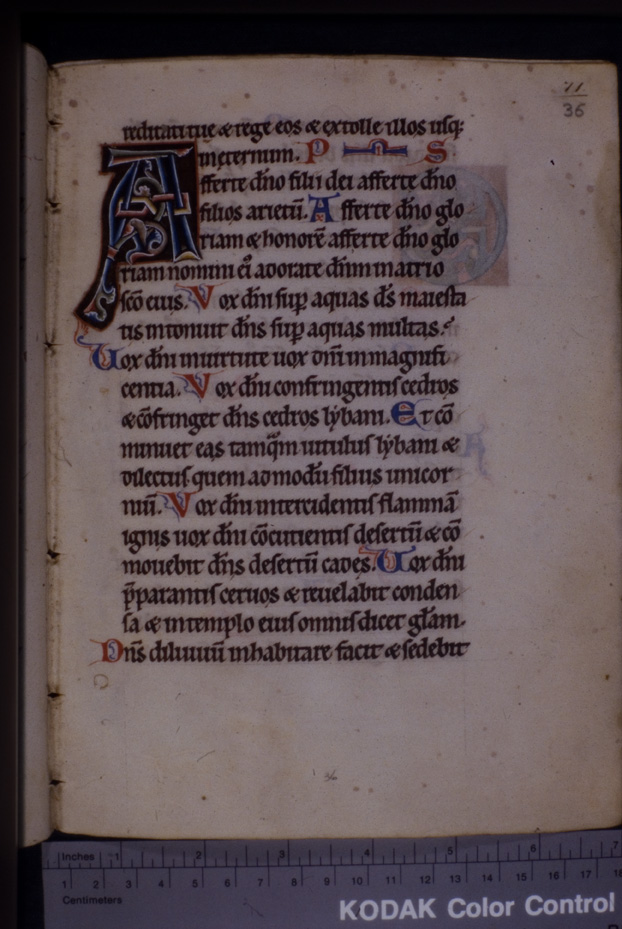 71
36
reditati tue & rege eos & extolle illos usq;
ineternum. P S
Afferte dño filii dei afferte dño
filios arietū. Afferte dño glo
riam & honorē afferte dño glo
riam nomini ei᾽ adorate dñm in atrio
scō eius. Vox dñi sup aquas ds maiesta
tis intonuit dñs sup aquas multas.
Uox dñi inuirtute uox dñi inmagnifi
centia. Vox dñi confringentis cedros
& cōfringet dñs cedros lẏbani. Et cō
minuet eas tamqm uitulus lẏbani &
dilectus quem admodū filius unicor
niū. Vox dñi intercidentis flammā
ignis uox dñi cōcutientis desertū & cō
mouebit dñs desertū cades. Uox dñi
pparantis ceruos & reuelabit conden
sa & intemplo eius omnis dicet glam.
Dñs diluuiū inhabitare facit & sedebit
D
36
Inches 1 2 3 4 5 6 7
1 2 3 4 5 6 7 8 9 10 11 12 13 14 15 16 17 18
Centimeters
KODAK Color Control